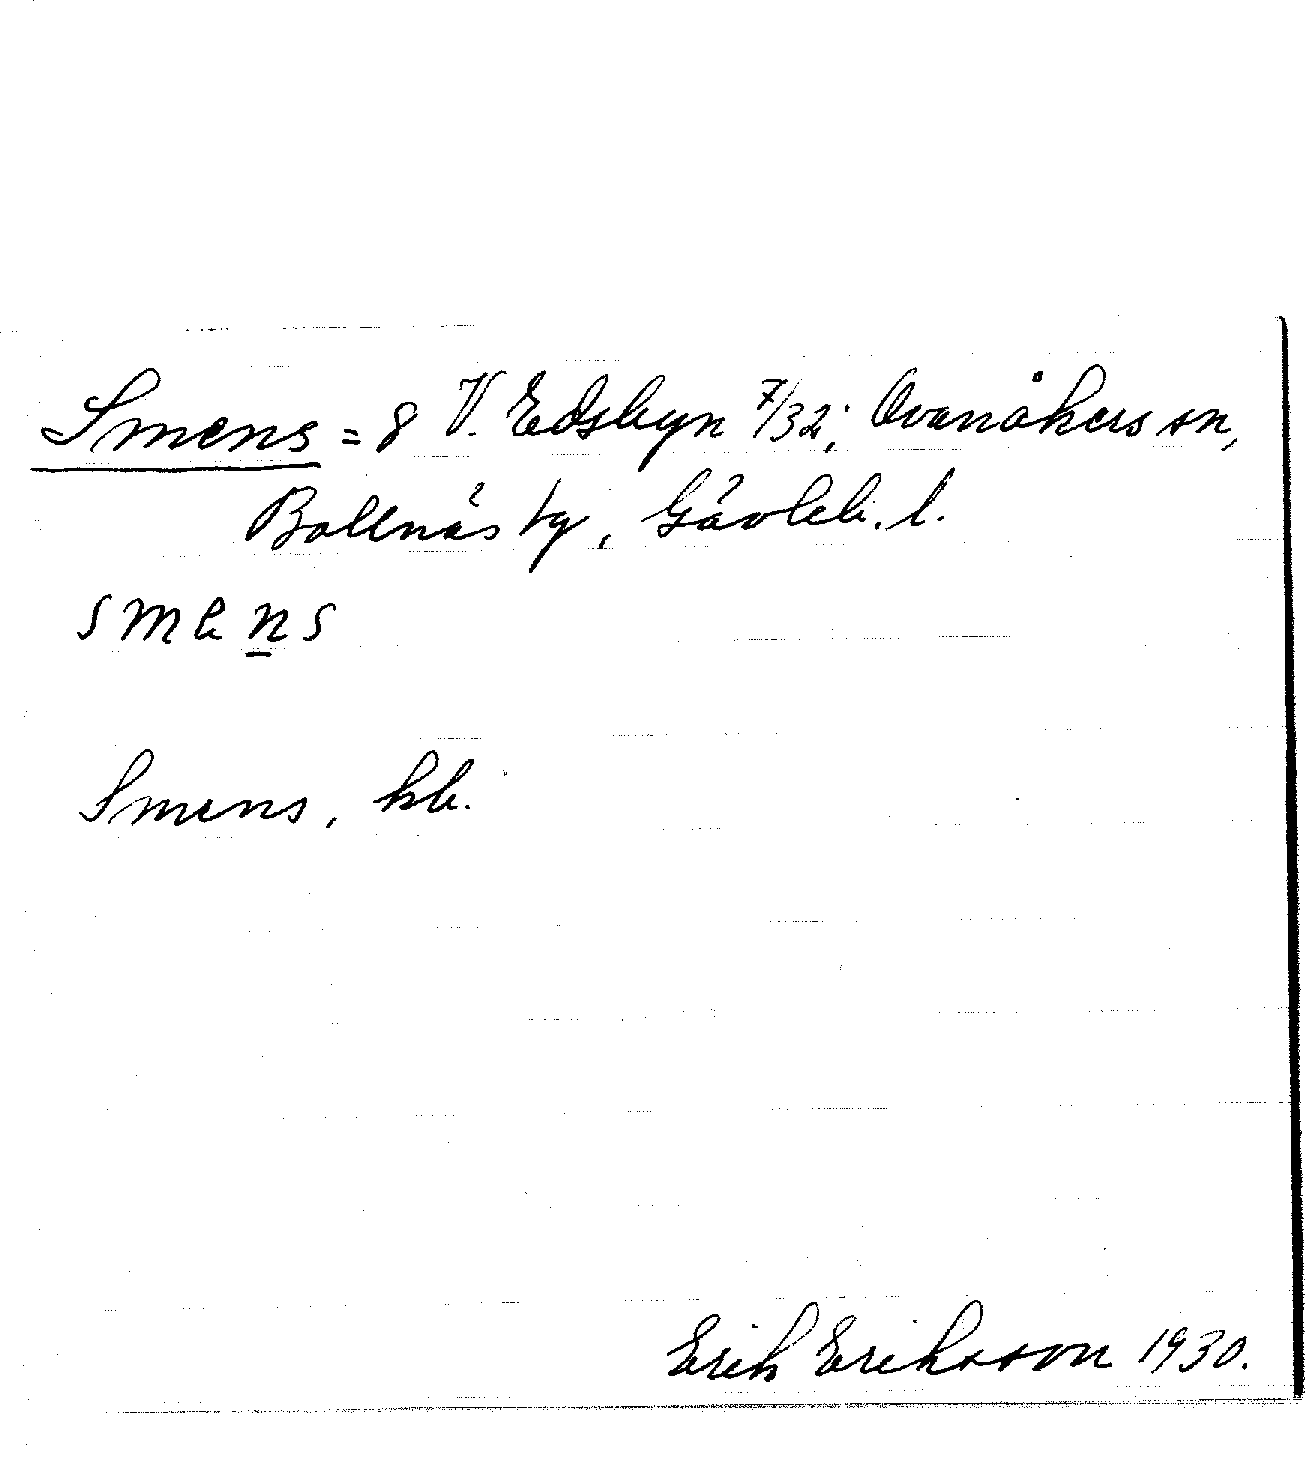 Smens = 8 V. Edsbyn 7/32; Ovanåkers sn,
Bollnäs tg, Gävleb. l.
smens
Smens, kb.
Erik Eriksson 1930.